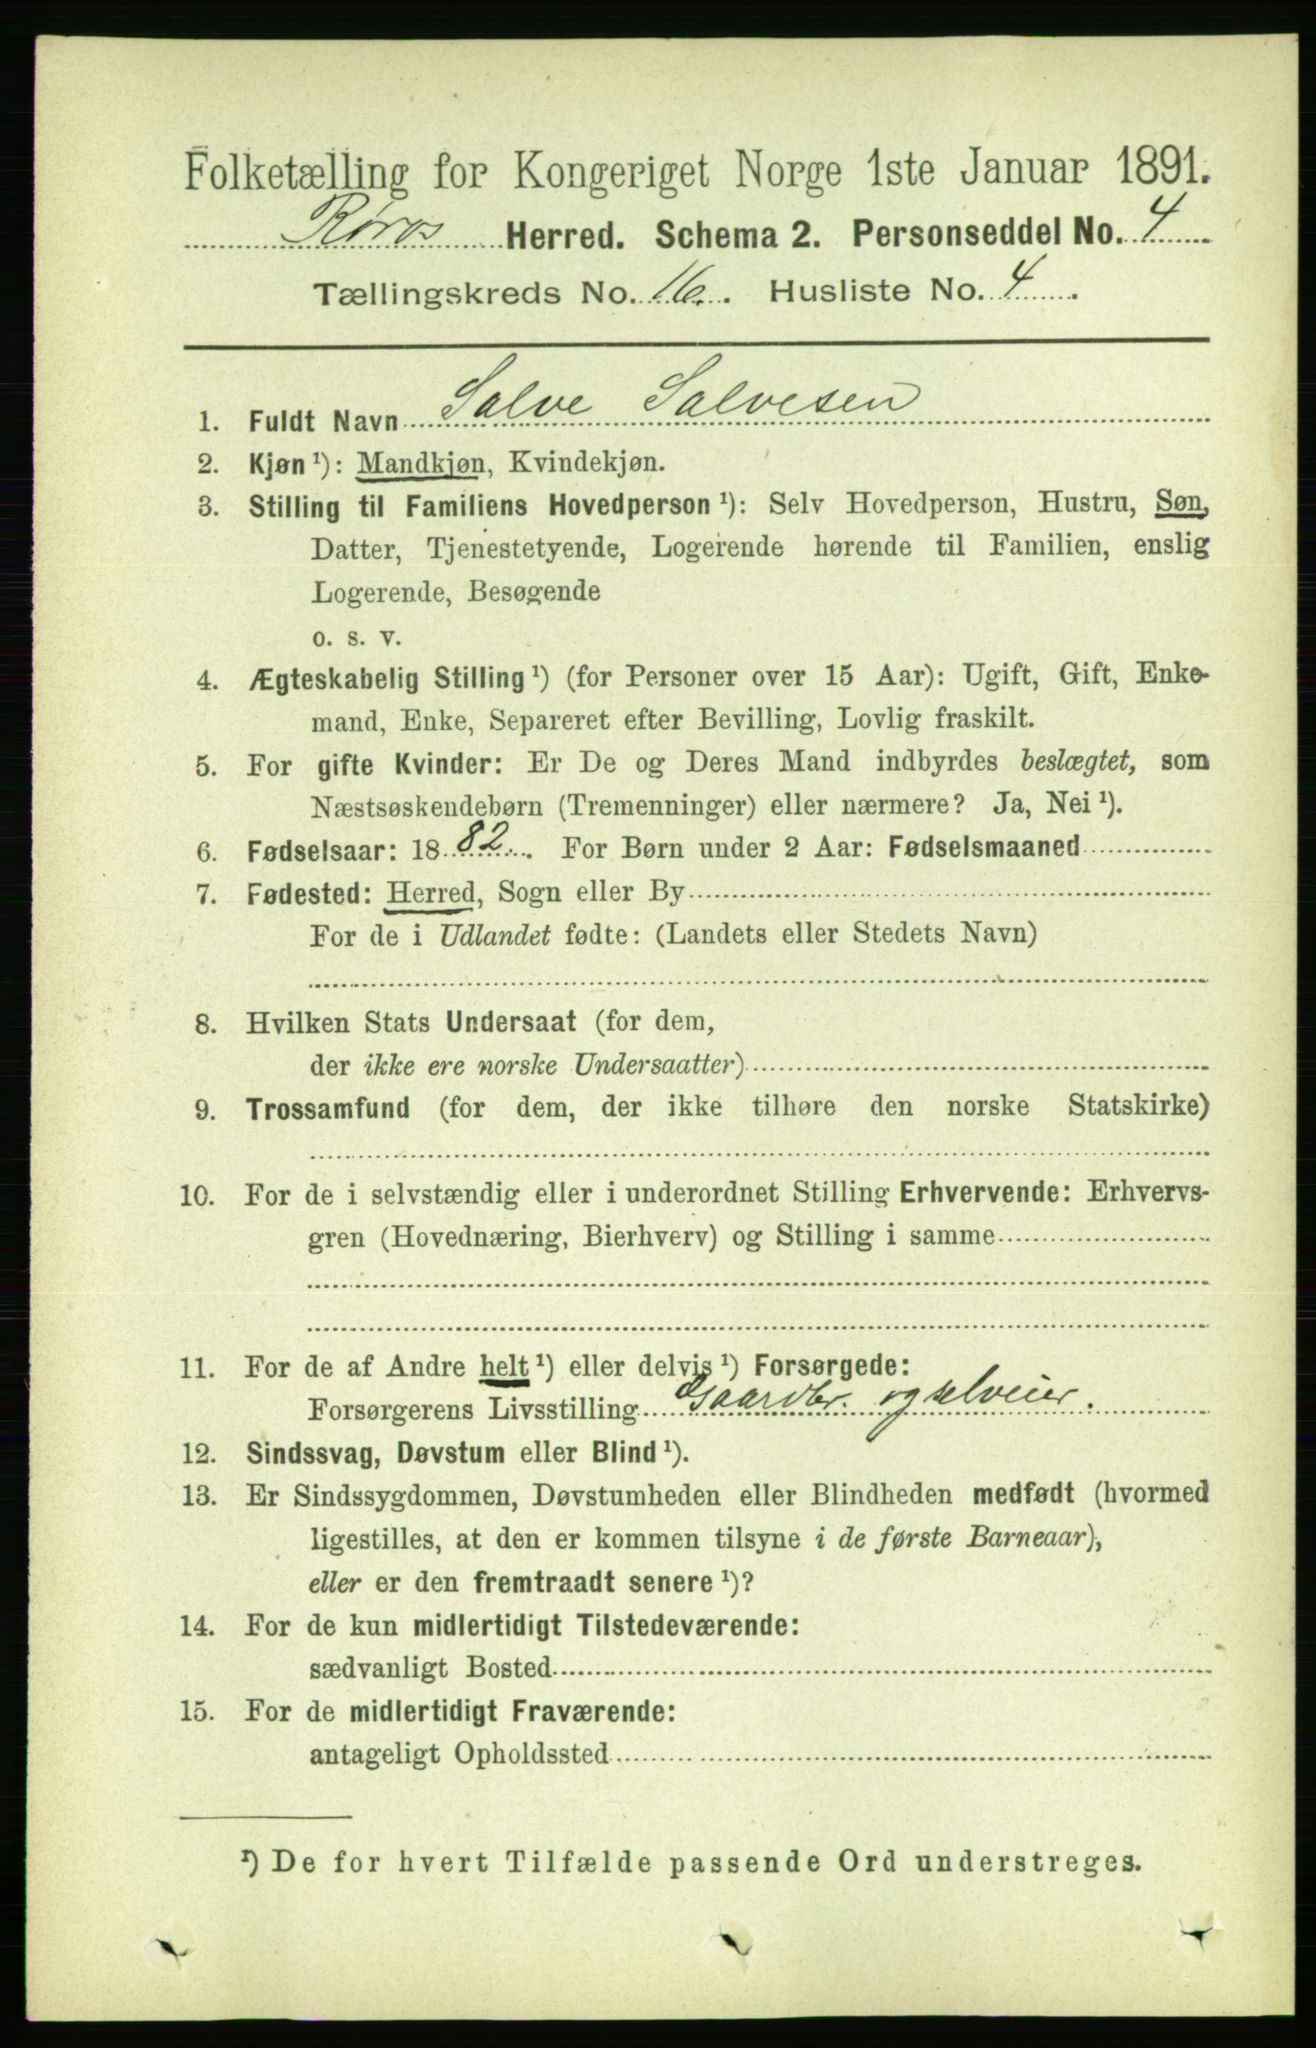 Folketælling for Kongeriget Norge 1ste Januar 1891.
Røros Herred. Schema 2. Personseddel No. 4
Tællingskreds No. 16. Husliste No. 4
1. Fuldt Navn Salve Salvesen
2. Kjøn ¹): Mandkjøn, Kvindekjøn.
3. Stilling til Familiens Hovedperson ¹): Selv Hovedperson, Hustru, Søn,
Datter, Tjenestetyende, Logerende hørende til Familien, enslig
Logerende, Besøgende
o. s. v.
4. Ægteskabelig Stilling ¹) (for Personer over 15 Aar): Ugift, Gift, Enke-
mand, Enke, Separeret efter Bevilling, Lovlig fraskilt.
5. For gifte Kvinder: Er De og Deres Mand indbyrdes beslægtet, som
Næstsøskendebørn (Tremenninger) eller nærmere? Ja, Nei ¹).
6. Fødselsaar: 1882. For Børn under 2 Aar: Fødselsmaaned
7. Fødested: Herred, Sogn eller By
For de i Udlandet fødte: (Landets eller Stedets Navn)
8. Hvilken Stats Undersaat (for dem,
der ikke ere norske Undersaatter)
9. Trossamfund (for dem, der ikke tilhøre den norske Statskirke)
10. For de i selvstændig eller i underordnet Stilling Erhvervende: Erhvervs-
gren (Hovednæring, Bierhverv) og Stilling i samme
11. For de af Andre helt ¹) eller delvis ¹) Forsørgede:
Forsørgerens Livsstilling Gaardbr. og selveier.
12. Sindssvag, Døvstum eller Blind ¹).
13. Er Sindssygdommen, Døvstumheden eller Blindheden medfødt (hvormed
ligestilles, at den er kommen tilsyne i de første Barneaar),
eller er den fremtraadt senere ¹)?
14. For de kun midlertidigt Tilstedeværende:
sædvanligt Bosted
15. For de midlertidigt Fraværende:
antageligt Opholdssted
¹) De for hvert Tilfælde passende Ord understreges.